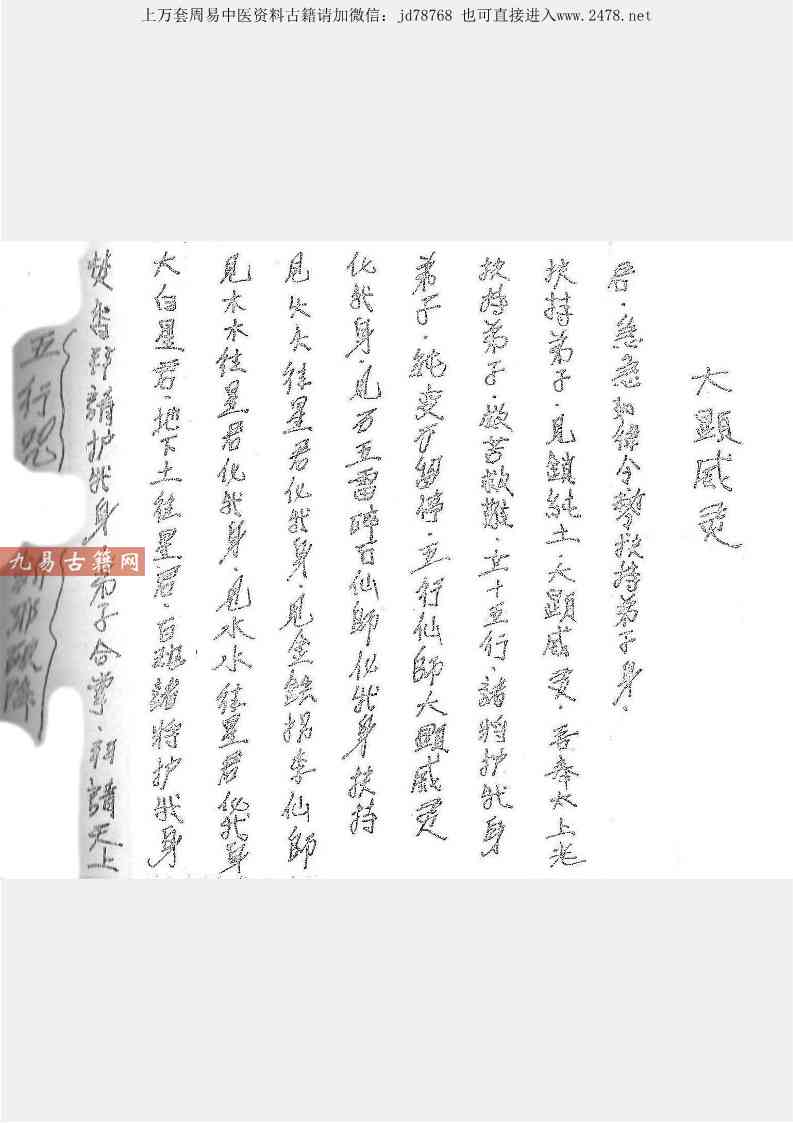 上万套周易中医资料古籍请加微信: jd78768 也可直接进入www.2478.net
五行咒
九易古籍网
焚香拜請护我身 弟子合掌·拜請天上
大白星君·地下土往星君·百跳諸将护我身
見木木往星君化我身·見水水往星君化我身
見火火往星君化我身·見金鉄拐李仙師
化我身·見万五雷碎石仙師化我身扶持
弟子·純变不留停·五行仙師大顯威灵
扶持弟子·救苦救難·立十五行·諸将护我身
扶持弟子·見鎖純土·大顯威灵·吾奉太上老
君·急急如律令勅扶持弟子身·
大顯威灵